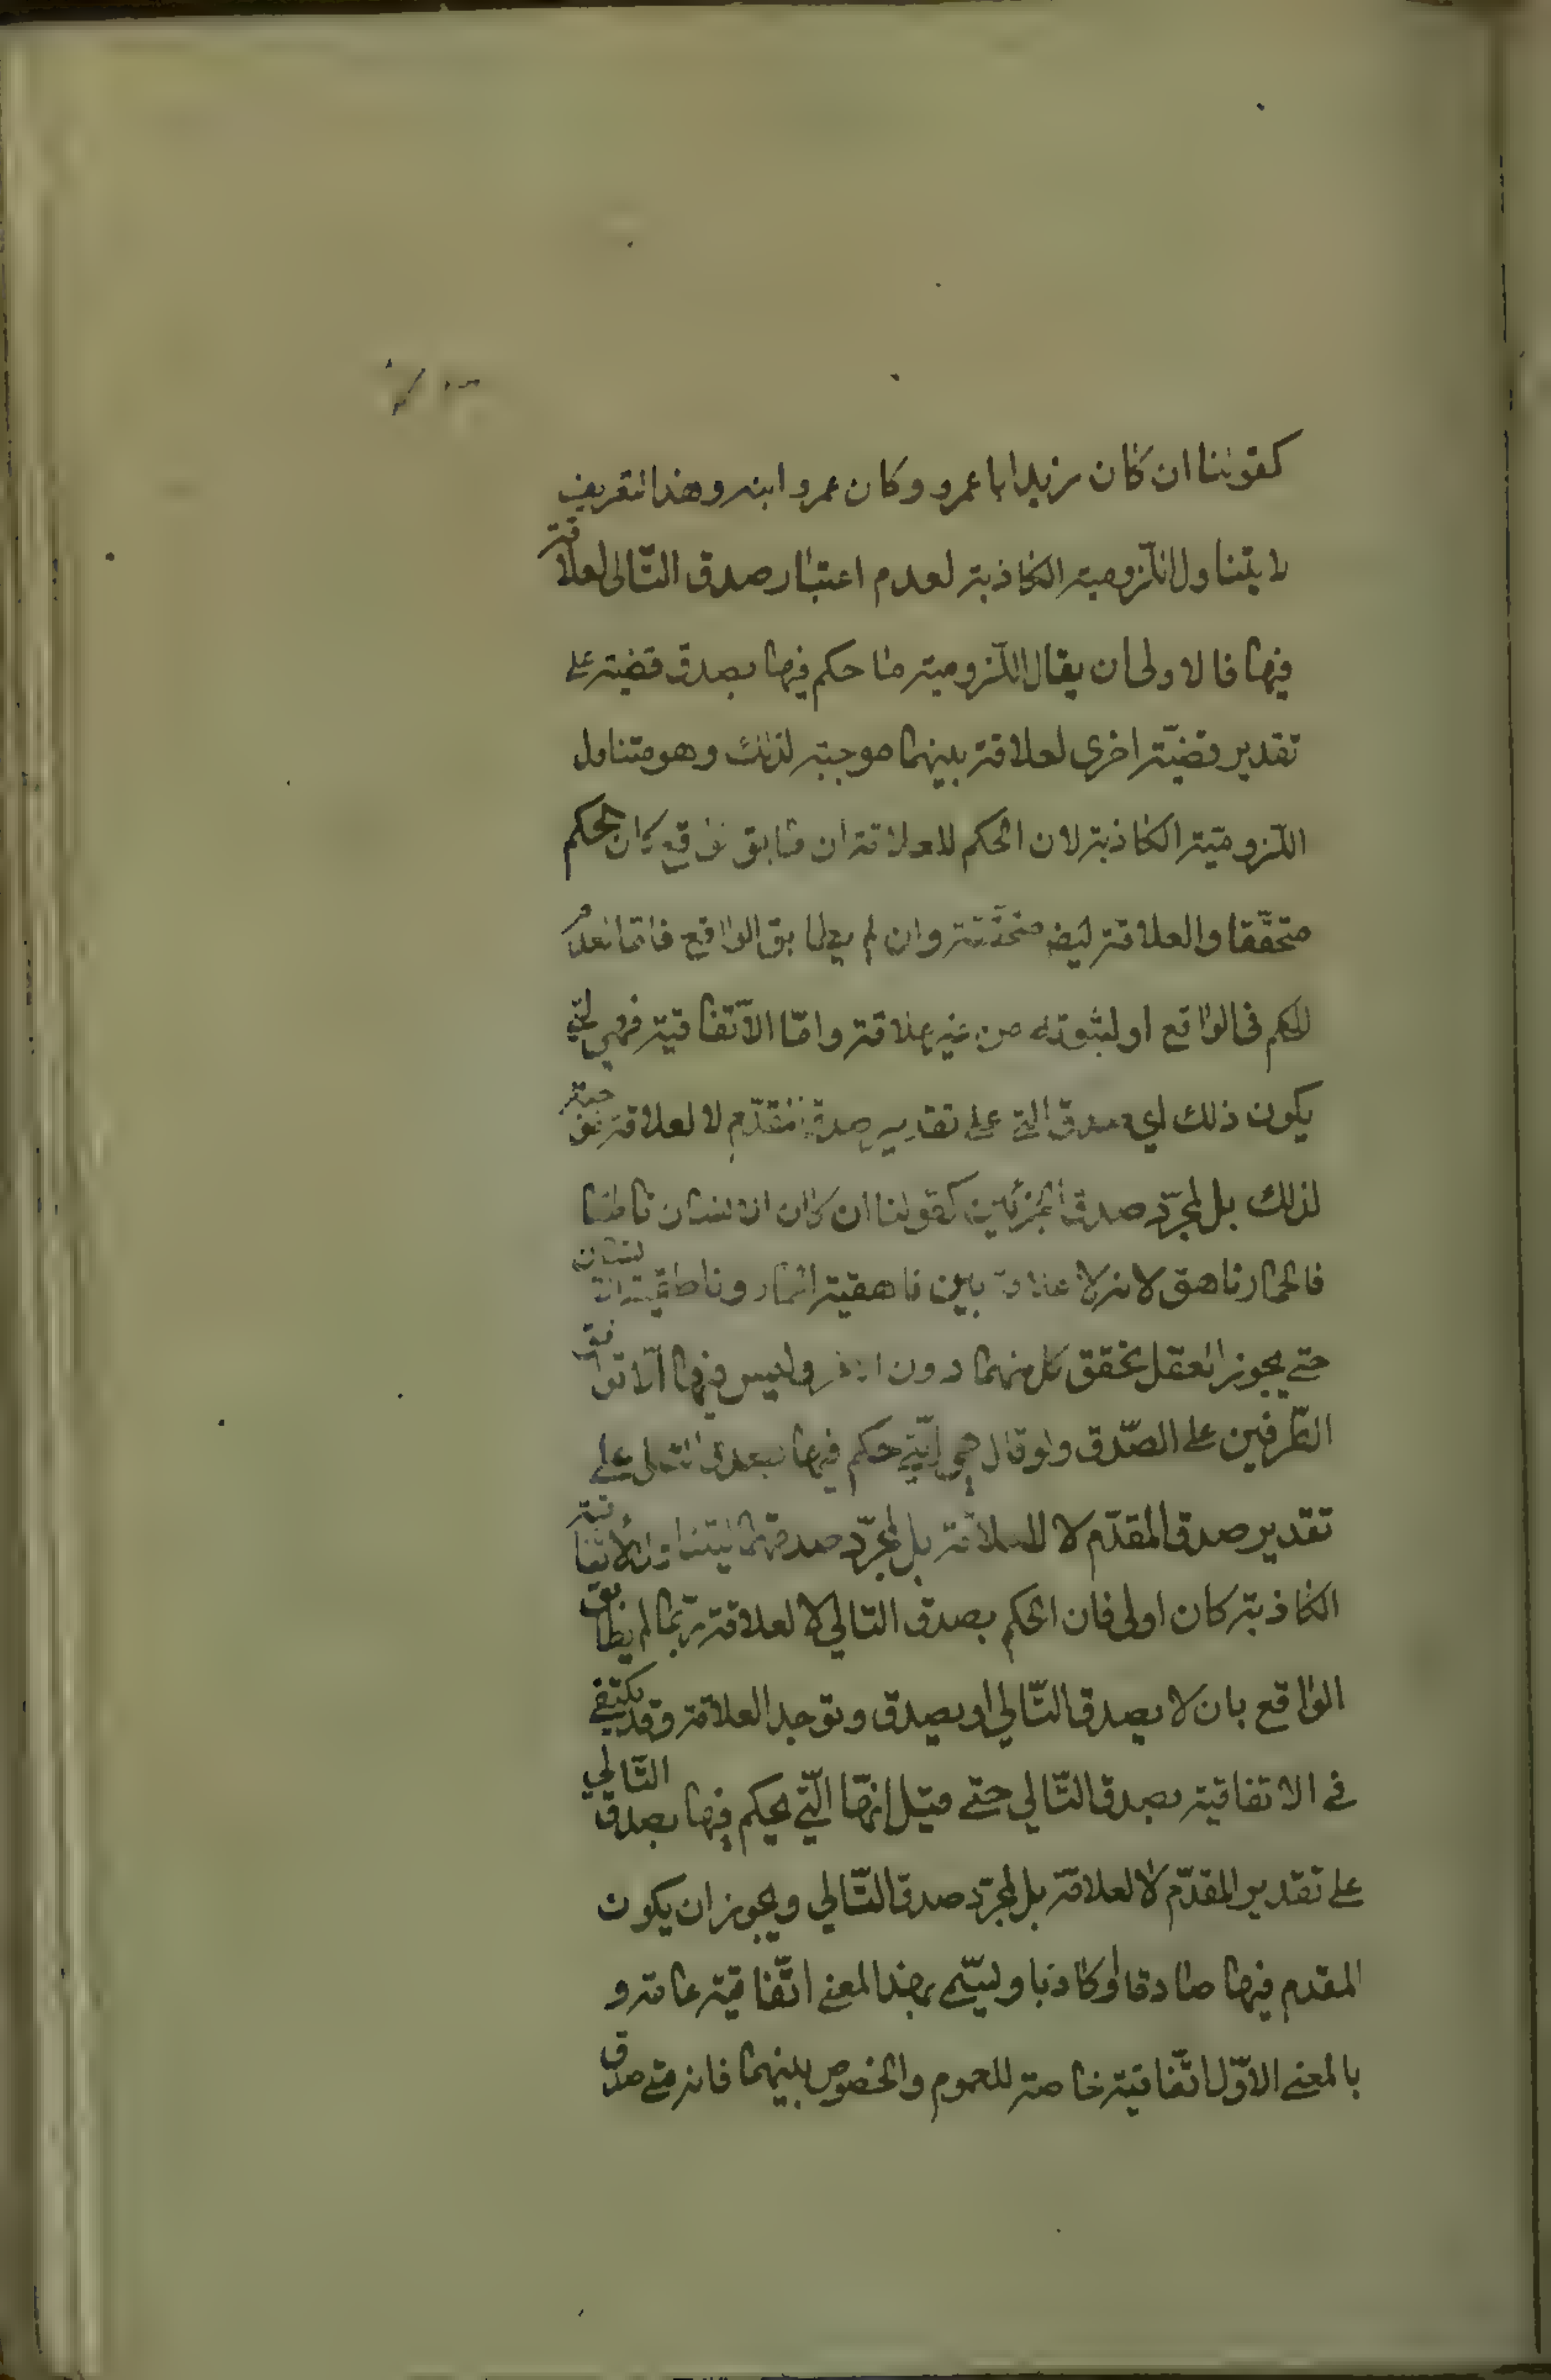 كقولنا ان كان زيد ابا عمرو وكان عمرو ابنه وهذا التعريف
لا يتناول اللزومية الكاذبة لعدم اعتبار صدق التالى لعلاقة
فيها فالاولى ان يقال اللزومية ما حكم فيها بصدق قضية على
تقدير قضية اخرى لعلاقة بينهما موجبة لذلك وهو متناول
اللزومية الكاذبة لان الحكم للعلاقة ان طابق الواقع كان الحكم
متحققا والعلاقة ايضا متحققة وان لم يطابق الواقع فاما لعدم
الحكم فى الواقع او لثبوته من غير علاقة واما الاتفاقية فهي التي
يكون ذلك اي صدق التالي على تقدير صدق المقدم لا لعلاقة موجبة
لذلك بل لمجرد صدق الجزئين كقولنا ان كان الانسان ناطقا
فالحمار ناهق لانه لا علاقة بين ناهقية الحمار وناطقية الانسان
حتى يجوز العقل تحقق كل منهما دون الاخر وليس فيها الا توافق
الطرفين على الصدق ولو قال هي التي حكم فيها بصدق التالى على
تقدير صدق المقدم لا للعلاقة بل لمجرد صدقهما ليتناول الاتفاقية
الكاذبة كان اولى فان الحكم بصدق التالي لا لعلاقة ربما لم يطابق
الواقع بان لا يصدق التالي او يصدق وتوجد العلاقة وقد يكتفى
في الاتفاقية بصدق التالي حتى قيل انها التي يحكم فيها بصدق التالي
على تقدير المقدم لا لعلاقة بل لمجرد صدق التالي ويجوز ان يكون
المقدم فيها صادقا او كاذبا ويسمى بهذا المعنى اتفاقية عامة و
بالمعنى الاول اتفاقية خاصة للعموم والخصوص بينهما فانه متى صدق